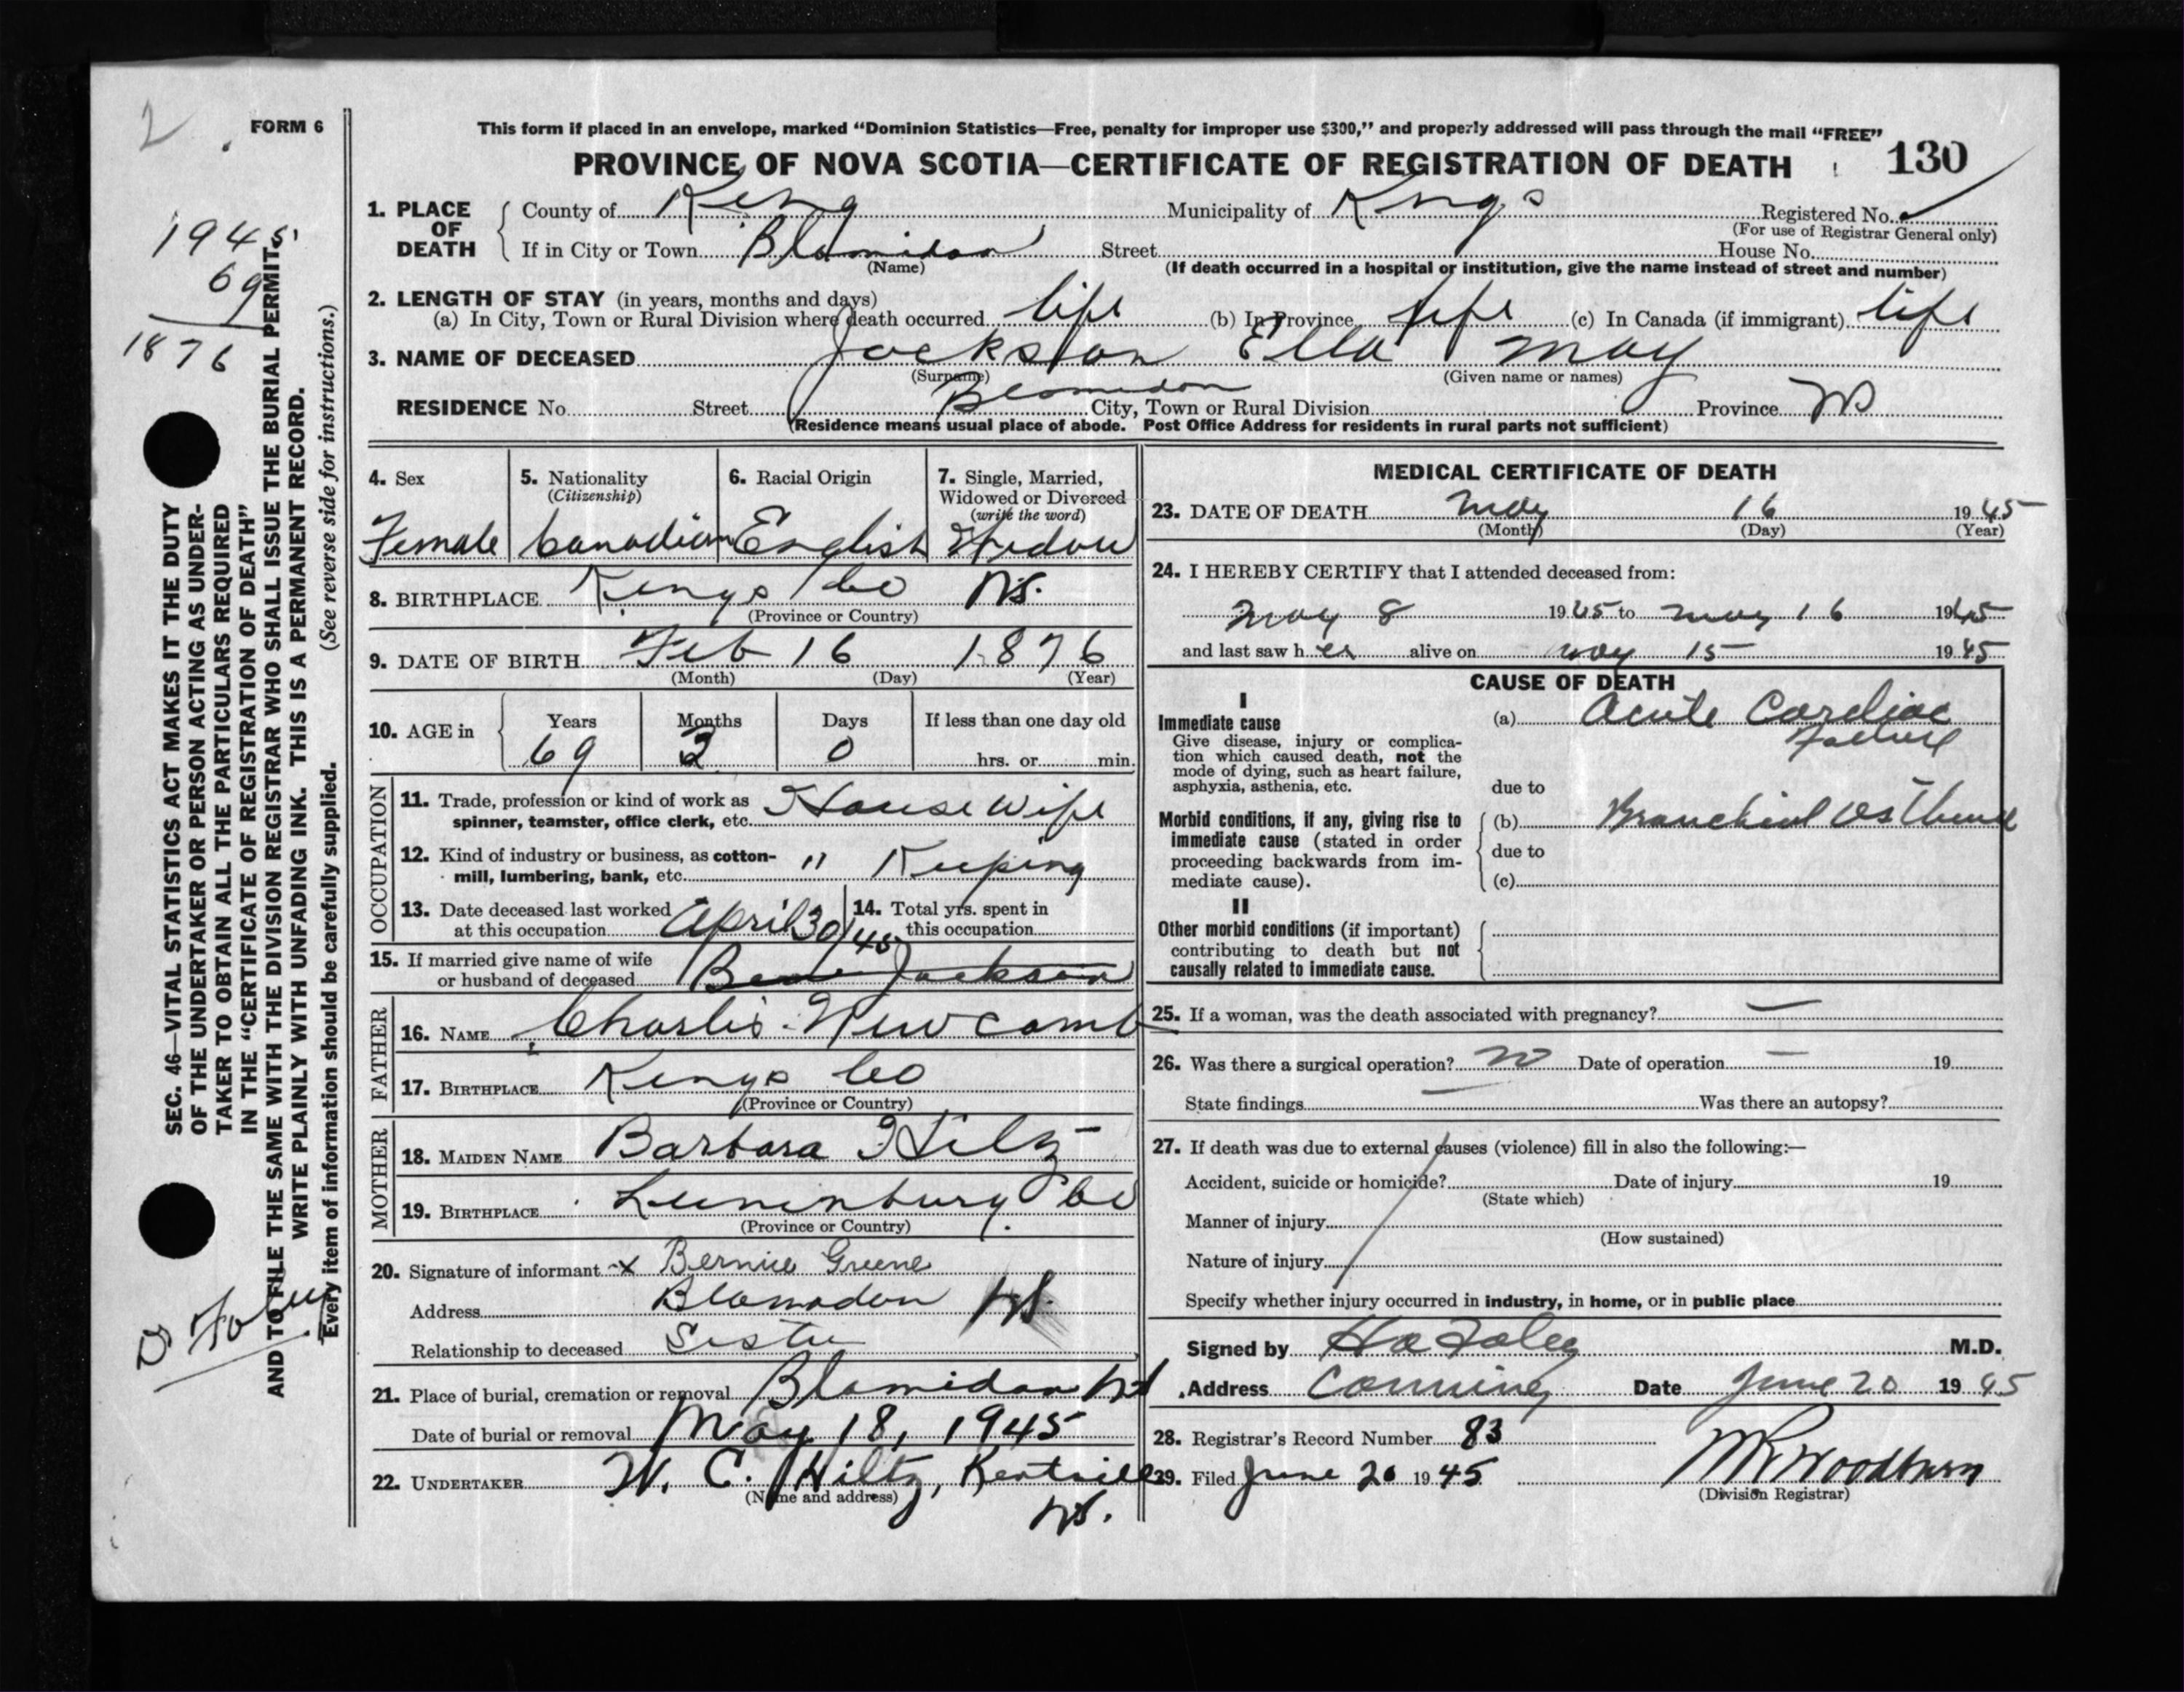 2
FORM 6
This form if placed in an envelope, marked “Dominion Statistics—Free, penalty for improper use $300,” and properly addressed will pass through the mail “FREE”
PROVINCE OF NOVA SCOTIA—CERTIFICATE OF REGISTRATION OF DEATH 130
1. PLACE OF DEATH
County of King Municipality of Kings Registered No.
(For use of Registrar General only)
If in City or Town Blomidon Street House No.
(Name) (If death occurred in a hospital or institution, give the name instead of street and number)
2. LENGTH OF STAY (in years, months and days)
(a) In City, Town or Rural Division where death occurred life (b) In Province life (c) In Canada (if immigrant) life
3. NAME OF DECEASED Jackson Ella May
(Surname) (Given name or names)
RESIDENCE No. Street Blomidon City, Town or Rural Division Province NS
(Residence means usual place of abode. Post Office Address for residents in rural parts not sufficient)
1945
69
1876
SEC. 46—VITAL STATISTICS ACT MAKES IT THE DUTY
OF THE UNDERTAKER OR PERSON ACTING AS UNDER-
TAKER TO OBTAIN ALL THE PARTICULARS REQUIRED
IN THE “CERTIFICATE OF REGISTRATION OF DEATH”
AND TO FILE THE SAME WITH THE DIVISION REGISTRAR WHO SHALL ISSUE THE BURIAL PERMIT.
WRITE PLAINLY WITH UNFADING INK. THIS IS A PERMANENT RECORD.
Every item of information should be carefully supplied. (See reverse side for instructions.)
Dr Foley
4. Sex 5. Nationality 6. Racial Origin 7. Single, Married,
(Citizenship) Widowed or Divorced
(write the word)
Female Canadian English Widow
8. BIRTHPLACE Kings Co NS.
(Province or Country)
9. DATE OF BIRTH Feb 16 1876
(Month) (Day) (Year)
10. AGE in Years Months Days If less than one day old
69 2 0 hrs. or min.
OCCUPATION
11. Trade, profession or kind of work as
spinner, teamster, office clerk, etc. House Wife
12. Kind of industry or business, as cotton-
mill, lumbering, bank, etc. " Keeping
13. Date deceased last worked
at this occupation April 30/45
14. Total yrs. spent in
this occupation
15. If married give name of wife
or husband of deceased Jackson
FATHER
16. NAME Charlis Newcomb
17. BIRTHPLACE Kings Co
(Province or Country)
MOTHER
18. MAIDEN NAME Barbara Hilz
19. BIRTHPLACE Lunenburg Co
(Province or Country)
20. Signature of informant x Bernice Greene
Address Blomodon NS.
Relationship to deceased Sister
21. Place of burial, cremation or removal Blomidon NS
Date of burial or removal May 18, 1945
22. UNDERTAKER W. C. Hiltz, Kentville
(Name and address) NS.
MEDICAL CERTIFICATE OF DEATH
23. DATE OF DEATH May 16 1945
(Month) (Day) (Year)
24. I HEREBY CERTIFY that I attended deceased from:
May 8 1945 to May 16 1945
and last saw her alive on May 15 1945
CAUSE OF DEATH
I
Immediate cause
Give disease, injury or complica-
tion which caused death, not the
mode of dying, such as heart failure,
asphyxia, asthenia, etc.
(a) Acute Cardiac
Failure
due to
Morbid conditions, if any, giving rise to
immediate cause (stated in order
proceeding backwards from im-
mediate cause).
(b) Bronchial Asthma
due to
(c)
II
Other morbid conditions (if important)
contributing to death but not
causally related to immediate cause.
25. If a woman, was the death associated with pregnancy? —
26. Was there a surgical operation? no Date of operation — 19
State findings — Was there an autopsy?
27. If death was due to external causes (violence) fill in also the following:—
Accident, suicide or homicide? Date of injury 19
(State which)
Manner of injury
(How sustained)
Nature of injury
Specify whether injury occurred in industry, in home, or in public place
Signed by Foley M.D.
Address Canning Date June 20 1945
28. Registrar's Record Number 83
29. Filed June 20 1945 Woodburn
(Division Registrar)